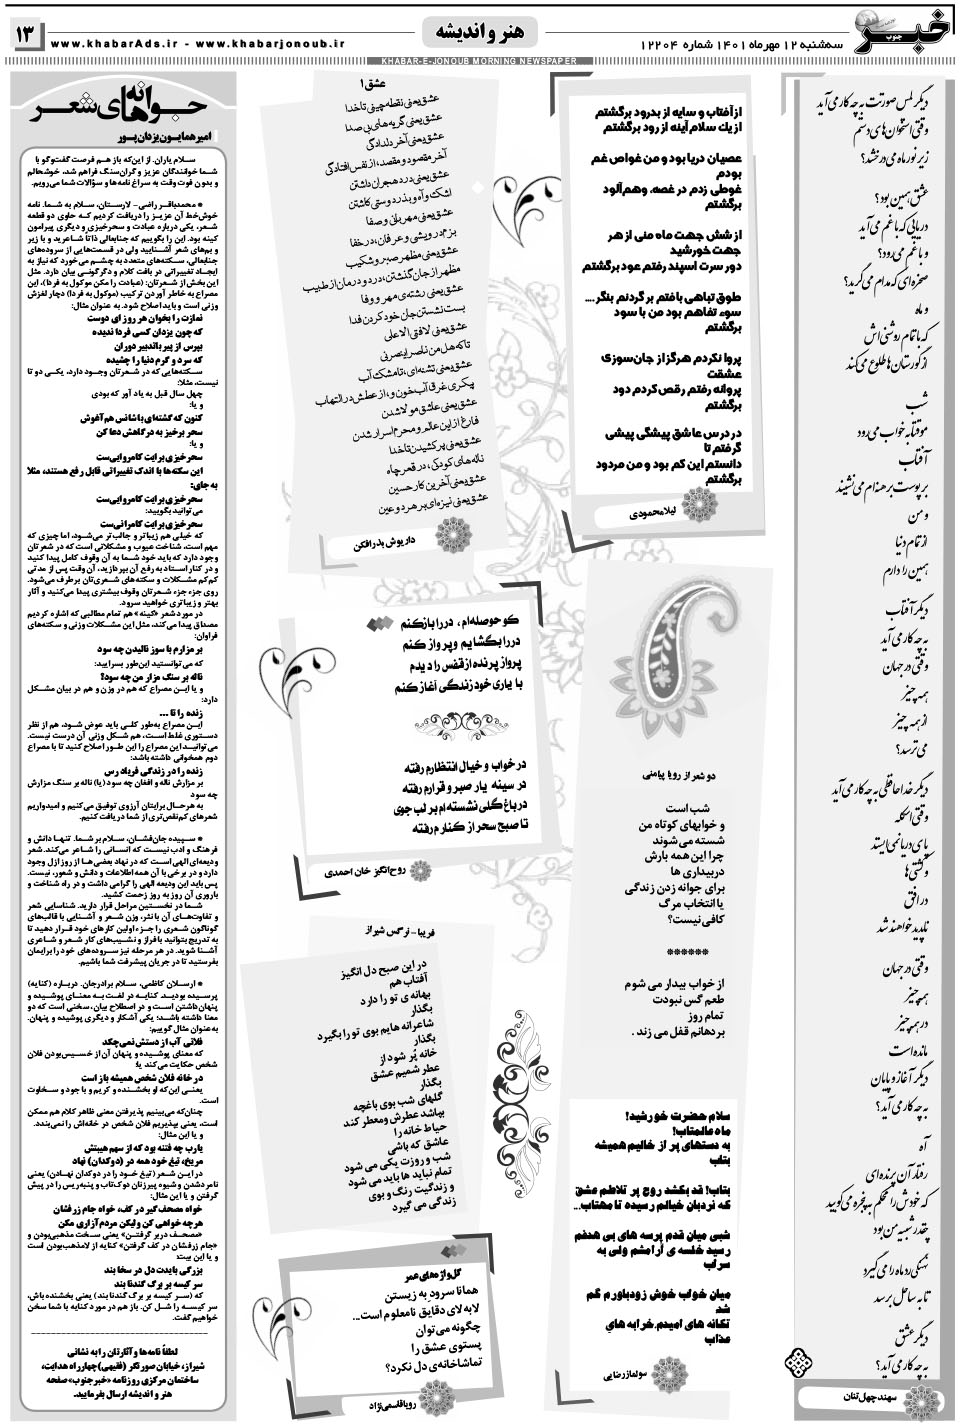 خبر جنوب
سه‌شنبه ۱۲ مهرماه ۱۴۰۱ شماره ۱۲۲۰۴
هنر و اندیشه
www.khabarAds.ir - www.khabarjonoub.ir
۱۳
KHABAR-E-JONOUB MORNING NEWSPAPER
دیگر لمس صورتت به چه کار می‌آید
وقتی استخوان‌های دستم
زیر نور ماه می‌درخشد؟
عشق همین بود؟
دریایی که با غم می‌آید
و با غم می‌رود؟
صخره‌ای که مدام می‌گرید؟
و ماه
که با تمام روشنی‌اش
از گورستان‌ها طلوع می‌کند
شب
موقتا به خواب می‌رود
آفتاب
بر پوست برهنه‌ام می‌نشیند
و من
از تمام دنیا
همین را دارم
دیگر آفتاب
به چه کار می‌آید
وقتی در جهان
همه چیز
از همه چیز
می‌ترسد؟
دیگر خداحافظی به چه کار می‌آید
وقتی اسکله
پای دریا نمی‌ایستد
و کشتی‌ها
در افق
ناپدید خواهند شد
وقتی در جهان
همه چیز
در همه چیز
مانده است
دیگر آغاز و پایان
به چه کار می‌آید؟
آه
رفتار آن پرنده‌ای
که خودش را محکم به پنجره می‌کوبید
چقدر شبیه من بود
نهنگی رد ماه را می‌گیرد
تا به ساحل برسد
دیگر عشق
به چه کار می‌آید؟
سهند چهل‌تنان
از آفتاب و سایه از بدرود برگشتم
از یک سلام آینه از رود برگشتم
عصیان دریا بود و من غواص غم
بودم
غوطی زدم در غصه، وهم‌آلود
برگشتم
از شش جهت ماه منی از هر
جهت خورشید
دور سرت اسپند رفتم عود برگشتم
طوق تباهی بافتم بر گردنم بنگر ....
سوء تفاهم بود من با سود
برگشتم
پروا نکردم هرگز از جان‌سوزی
عشقت
پروانه رفتم رقص کردم دود
برگشتم
در درس عاشق پیشگی پیشی
گرفتم تا
دانستم این کم بود و من مردود
برگشتم
لیلا محمودی
دو شعر از رویا یبامنی
شب است
و خوابهای کوتاه من
شسته می‌شوند
چرا این همه بارش
دربیداری ها
برای جوانه زدن زندگی
یا انتخاب مرگ
کافی نیست؟
******
از خواب بیدار می شوم
طعم گس نبودت
تمام روز
بر دهانم قفل می زند .
سلام حضرت خورشید!
ماه عالمتاب!
به دستهای پر از خالیم همیشه
بتاب
بتاب! قد بکشد روح پر تلاطم عشق
که نردبان خیالم رسیده تا مهتاب...
شبی میان قدم پرسه های بی هدفم
رسید خلسه ی آرامشم ولی به
سراب
میان خواب خوش زودباورم گم
شد
تکانه های امیدم.خرابه های
عذاب
سولماز رضایی
عشق!
عشق یعنی نقطه چینی تا خدا
عشق یعنی گریه‌های بی صدا
عشق یعنی آخر دلدادگی
آخر مقصود و مقصد، از نفس افتادگی
عشق یعنی درد هجران داشتن
اشک و آه و بذر دوستی کاشتن
عشق یعنی مهربانی و صفا
بزم درویشی و عرفان، در خفا
عشق یعنی مظهر صبر و شکیب
مظهر از جان گذشتن، درد و درمان از طبیب
عشق یعنی رشته‌ی مهر و وفا
بست نشستن جان خود کردن فدا
عشق یعنی لافتی الا علی
تا که هل من ناصر اینصرنی
عشق یعنی تشنه‌ای، تا مشک آب
پیکری غرق آب خون و، از عطش در التهاب
عشق یعنی عاشق مولا شدن
فارغ از این عالم و محرم اسرار شدن
عشق یعنی پر کشیدن تا خدا
ناله‌های کودکی، در قعر چاه
عشق یعنی آخرین کار حسین
عشق یعنی نیزه‌ای بر هر دو عین
داریوش بذرافکن
کو حوصله‌ام، در را باز کنم
در را بگشایم و پرواز کنم
پرواز پرنده از قفس را دیدم
با یاری خود زندگی آغاز کنم
در خواب و خیال انتظارم رفته
در سینه یار صبر و قرارم رفته
در باغ گلی نشسته‌ام بر لب جوی
تا صبح سحر از کنارم رفته
روح‌انگیز خان احمدی
فریبا - نرگس شیراز
در این صبح دل انگیز
آفتاب هم
بهانه ی تو را دارد
بگذار
شاعرانه هایم بوی تو را بگیرد
بگذار
خانه پُر شود از
عطر شمیم عشق
بگذار
گلهای شب بوی باغچه
بپاشد عطرش ومعطر کند
حیاط خانه را
عاشق که باشی
شب و روزت یکی می شود
تمام نباید ها باید می شود
و زندگیت رنگ و بوی
زندگی می گیرد
گل‌واژه‌های عمر
همانا سرود به زیستن
لابه لای دقایق نامعلوم است...
چگونه می‌توان
پستوی عشق را
تماشاخانه‌ی دل نکرد؟
رویا قاسمی‌نژاد
جوانه‌های شعر
امیرهمایون یزدان‌پور
سلام یاران. از این‌که باز هم فرصت گفت‌وگو با
شما خوانندگان عزیز و گران‌سنگ فراهم شد، خوشحالم
و بدون فوت وقت به سراغ نامه‌ها و سؤالات شما می‌رویم.
* محمدباقر راضی- لارستان، سلام به شما. نامه
خوش‌خط آن عزیز را دریافت کردیم که حاوی دو قطعه
شعر، یکی درباره عبادت و سحرخیزی و دیگری پیرامون
کینه بود. این را بگوییم که جنابعالی ذاتاً شاعرید و با زیر
و بم‌های شعر آشنایید ولی در قسمت‌هایی از سروده‌های
جنابعالی، سکته‌های متعدد به چشم می‌خورد که نیاز به
ایجاد تغییراتی در بافت کلام و دگرگونی بیان دارد. مثل
این بخش از شعرتان: (عبادت را مکن موکول به فردا)، این
مصراع به خاطر آوردن ترکیب (موکول به فردا) دچار لغزش
وزنی است و باید اصلاح شود. به عنوان مثال:
نمازت را بخوان هر روز ای دوست
که چون یزدان کسی فردا ندیده
بپرس از پیر باتدبیر دوران
که سرد و گرم دنیا را چشیده
سکته‌هایی که در شعرتان وجود دارد، یکی دو تا
نیست، مثلا:
چهل سال قبل به یاد آور که بودی
و یا:
کنون که گشته‌ای با شانس هم‌آغوش
سحر برخیز به درگاهش دعا کن
و یا:
سحرخیزی برایت کامروایی‌ست
این سکته‌ها با اندک تغییراتی قابل رفع هستند، مثلا
به جای:
سحرخیزی برایت کامروایی‌ست
می‌توانید بگویید:
سحرخیزی برایت کامرانی‌ست
که خیلی هم زیباتر و جالب‌تر می‌شود، اما چیزی که
مهم است، شناخت عیوب و مشکلاتی است که در شعرتان
وجود دارد که باید خود شما به آن وقوف کامل پیدا کنید
و در کنار استاد به رفع آن بپردازید، آن وقت پس از مدتی
کم‌کم مشکلات و سکته‌های شعری‌تان برطرف می‌شود.
روی جزء جزء شعرتان وقوف بیشتری پیدا می‌کنید و آثار
بهتر و زیباتری خواهید سرود.
در مورد شعر «کینه» هم تمام مطالبی که اشاره کردیم
مصداق پیدا می‌کند، مثل این مشکلات وزنی و سکته‌های
فراوان:
بر مزارم با سوز نالیدن چه سود
که می‌توانستید این‌طور بسرایید:
ناله بر سنگ مزار من چه سود؟
و یا این مصراع که هم در وزن و هم در بیان مشکل
دارد:
زنده را تا ...
این مصراع به‌طور کلی باید عوض شود، هم از نظر
دستوری غلط است، هم شکل وزنی آن درست نیست.
می‌توانید این مصراع را این طور اصلاح کنید تا با مصراع
دوم همخوانی داشته باشد:
زنده را در زندگی فریاد رس
بر مزارش ناله و افغان چه سود (یا) ناله بر سنگ مزارش
چه سود
به هر حال برایتان آرزوی توفیق می‌کنیم و امیدواریم
شعرهای کم‌نقص‌تری از شما دریافت کنیم.
* سپیده جان‌فشان، سلام بر شما. تنها دانش و
فرهنگ و ادب نیست که انسانی را شاعر می‌کند. شعر
ودیعه‌ای الهی است که در نهاد بعضی‌ها از روز ازل وجود
دارد و در برخی با آن همه اطلاعات و دانش و شعور، نیست.
پس باید این ودیعه الهی را گرامی داشت و در راه شناخت و
باروری آن روز به روز زحمت کشید.
شما در نخستین مراحل قرار دارید. شناسایی شعر
و تفاوت‌های آن با نثر، وزن شعر و آشنایی با قالب‌های
گوناگون شعری را جزء اولین کارهای خود قرار دهید تا
به تدریج بتوانید با فراز و نشیب‌های کار شعر و شاعری
آشنا شوید. در هر مرحله نیز سروده‌های خود را برایمان
بفرستید تا در جریان پیشرفت شما باشیم.
* ارسلان کاظمی، سلام برادرجان. درباره (کنایه)
پرسیده بودید. کنایه در لغت به معنای پوشیده و
پنهان‌داشتن است و در اصطلاح بیان، سخنی است که دو
معنا داشته باشد؛ یکی آشکار و دیگری پوشیده و پنهان.
به عنوان مثال گوییم:
فلانی آب از دستش نمی‌چکد
که معنای پوشیده و پنهان آن از خسیس‌بودن فلان
شخص حکایت می‌کند یا:
در خانه فلان شخص همیشه باز است
یعنی این‌که او بخشنده و کریم و با جود و سخاوت
است.
چنان‌که می‌بینیم پذیرفتن معنی ظاهر کلام هم ممکن
است، یعنی بپذیریم فلان شخص در خانه‌اش را نمی‌بندد.
و یا این مثال:
یارب چه فتنه بود که از سهم هیبتش
مریخ، تیغ خود همه در (دوکدان) نهاد
در این شعر (تیغ خود را در دوکدان نهادن) یعنی
نامردشدن و شیوه پیرزنان دوک‌تاب و پنبه‌ریس را در پیش
گرفتن و یا این مثال:
خواه مصحف گیر در کف، خواه جام زرفشان
هرچه خواهی کن ولیکن مردم‌آزاری مکن
«مصحف دربر گرفتن» یعنی سخت مذهبی‌بودن و
«جام زرفشان در کف گرفتن» کنایه از لامذهب‌بودن است
و یا این بیت:
بزرگی بایدت دل در سخا بند
سر کیسه بر برگ گندنا بند
که (سر کیسه بر برگ گندنا بند) یعنی بخشنده باش،
سر کیسه را شل کن. باز هم در مورد کنایه با شما سخن
خواهیم گفت.
لطفاً نامه‌ها و آثارتان را به نشانی
شیراز، خیابان صورتگر (فقیهی) چهارراه هدایت،
ساختمان مرکزی روزنامه «خبرجنوب» صفحه
هنر و اندیشه ارسال بفرمایید.